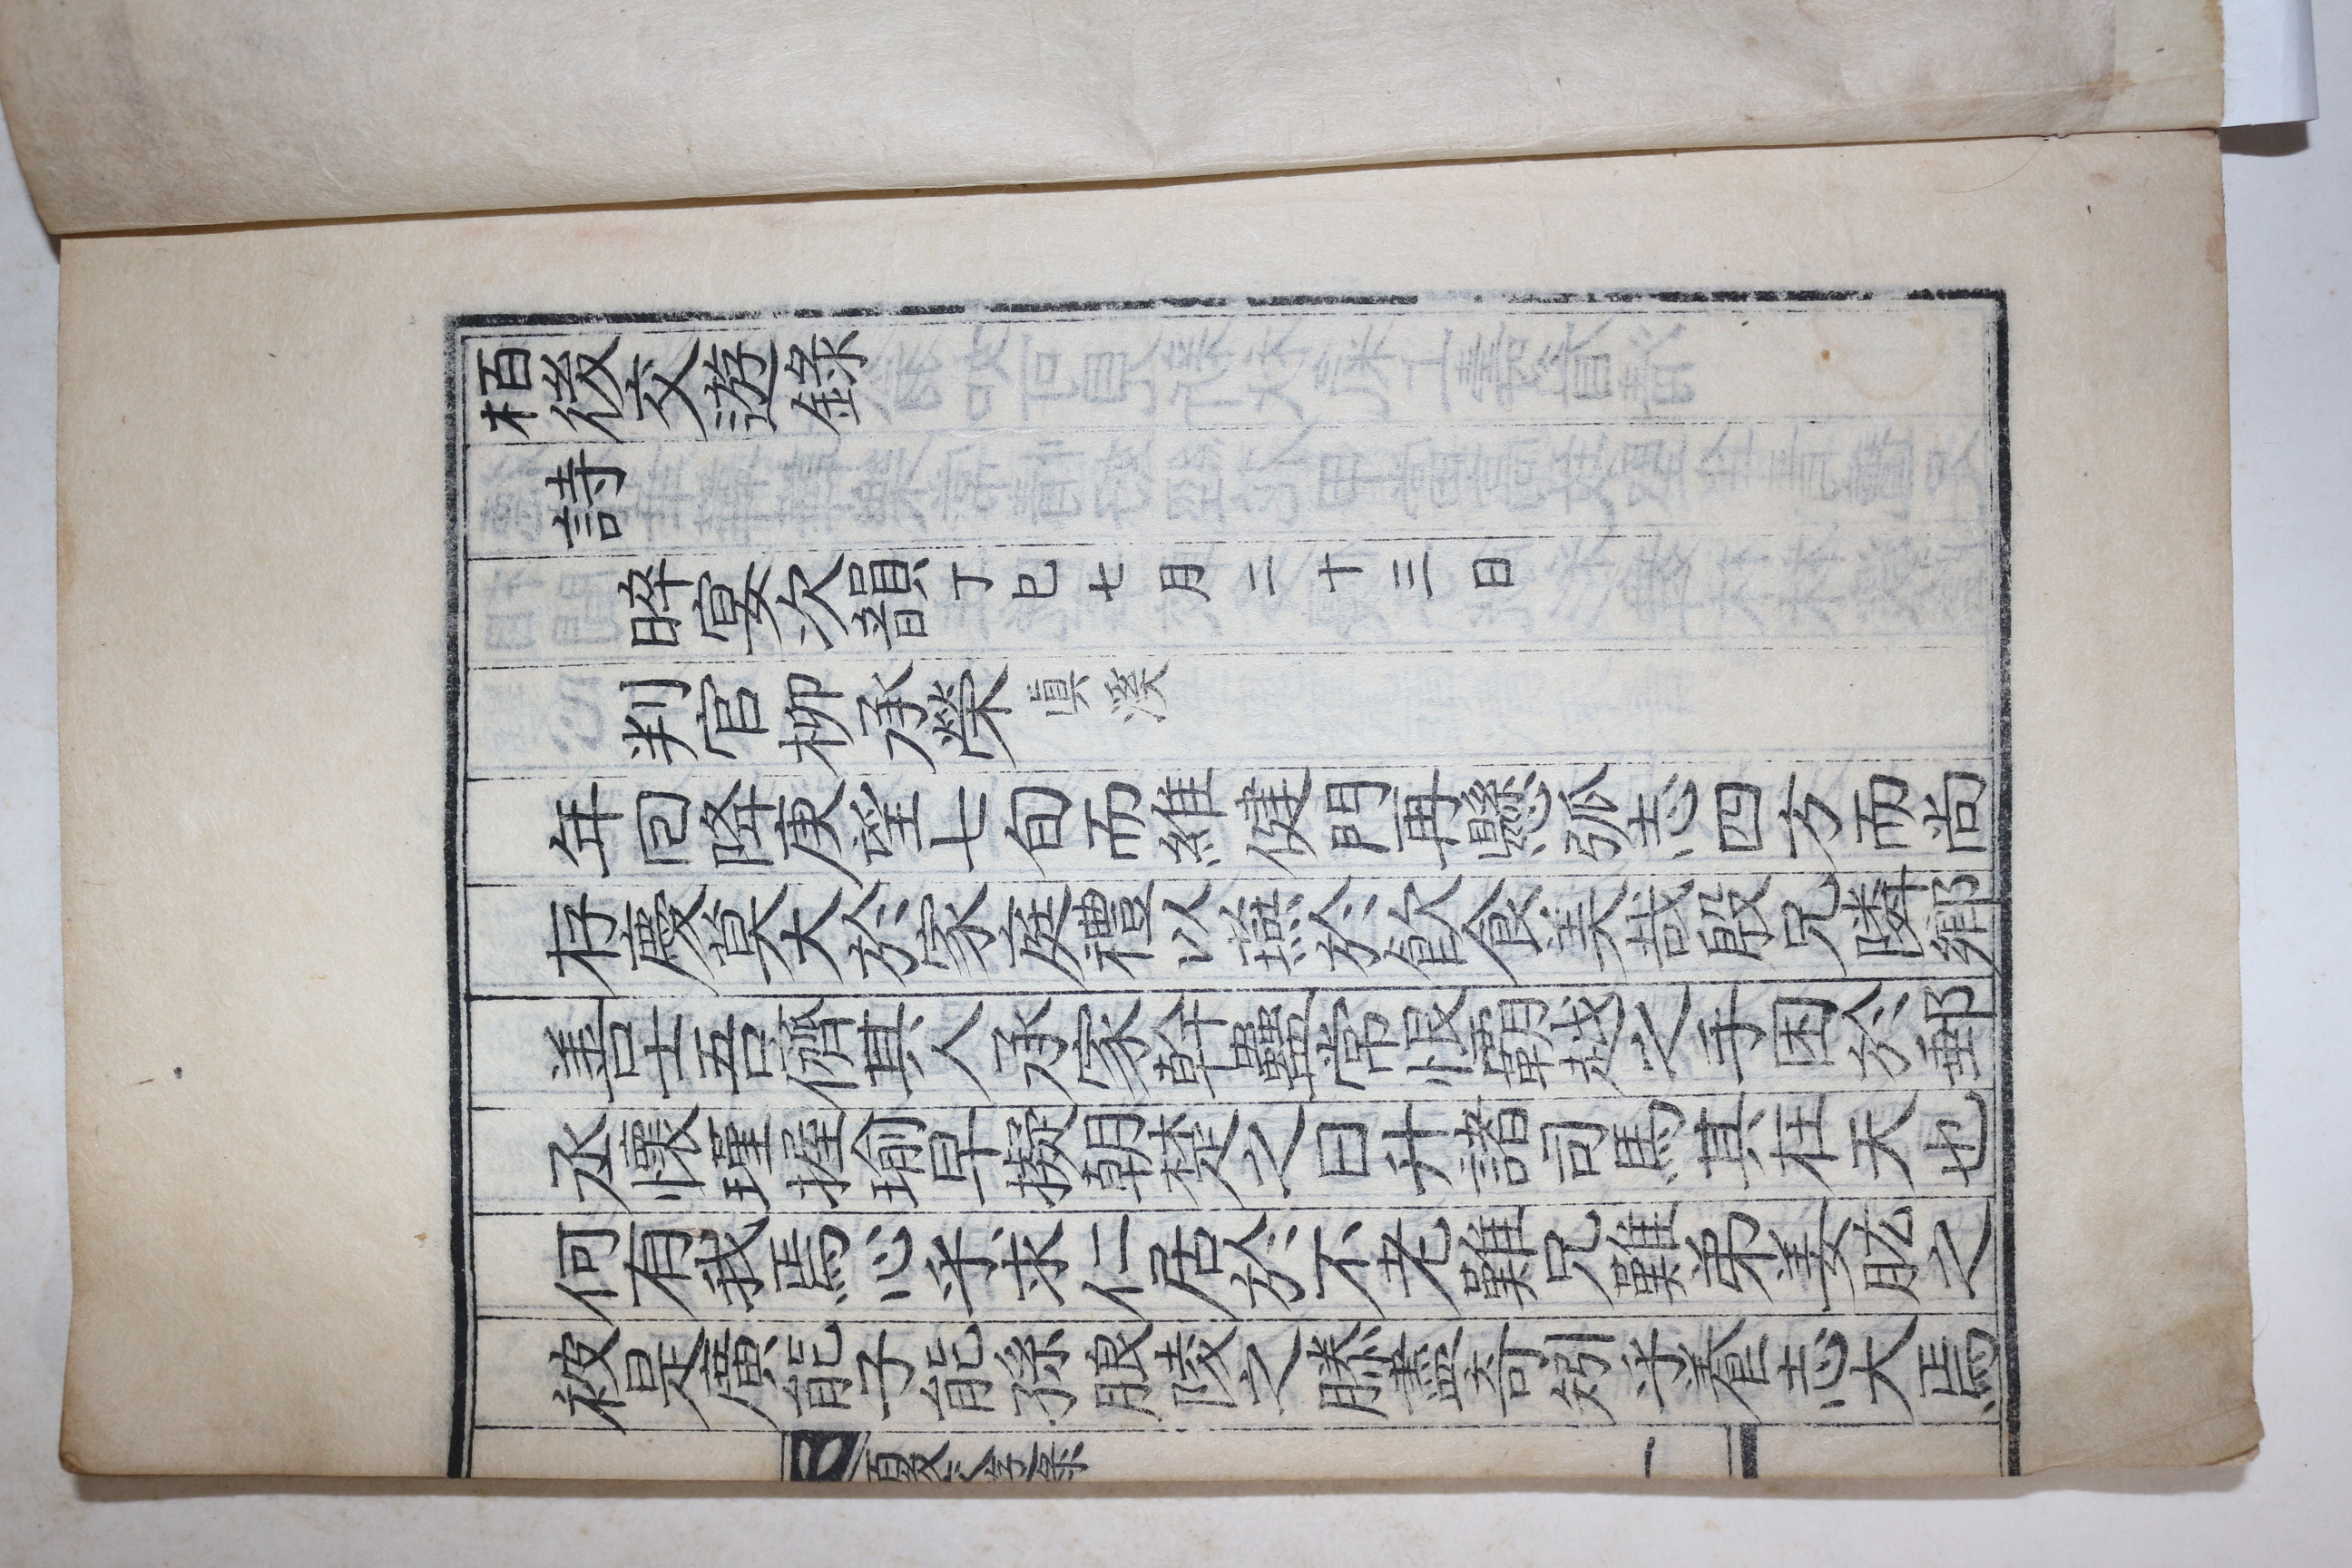 栢後交遊錄
詩
晬宴次韻丁巳七月二十三日
判官柳承榮眞溪
年回降庚望七旬而維健門再懸弧志四方而尚
存慶莫大於家庭禮以燕於飮食美哉殷兄隣鄉
善士吾儕其人承家幹蠱常恨霸越之手困於郵
丞懷瑾握瑜早擬朝楚之日升諸司馬其在天也
何有我焉心乎求仁居於不老難兄難弟姜肱之
被是廣能子能孫朖陵之滕盡奇矧乎養志大焉
後交遊錄
一